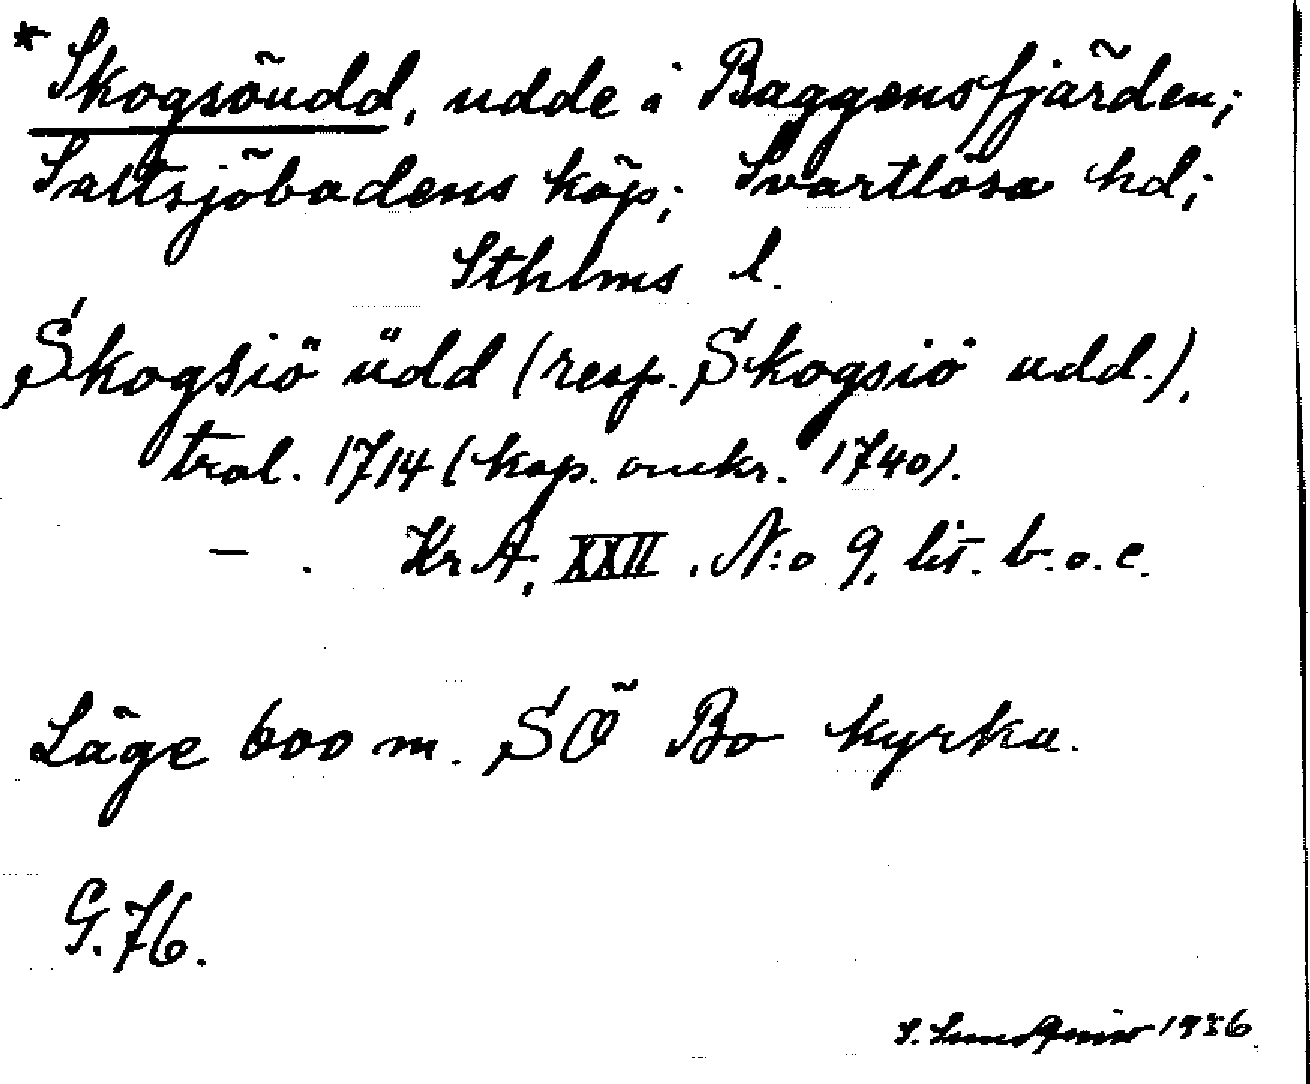 * Skogsöudd, udde i Baggensfjärden;
Saltsjöbadens köp; Svartlösa hd;
Sthlms l.
Skogsiö üdd (resp. Skogsiö udd.),
trol. 1714 (kop. omkr. 1740).
— . KrA, XXII. N:o 9, lit. b.o.c.
Läge 600 m. SÖ Bo kyrka.
G.76.
S. Lundqvist 1936